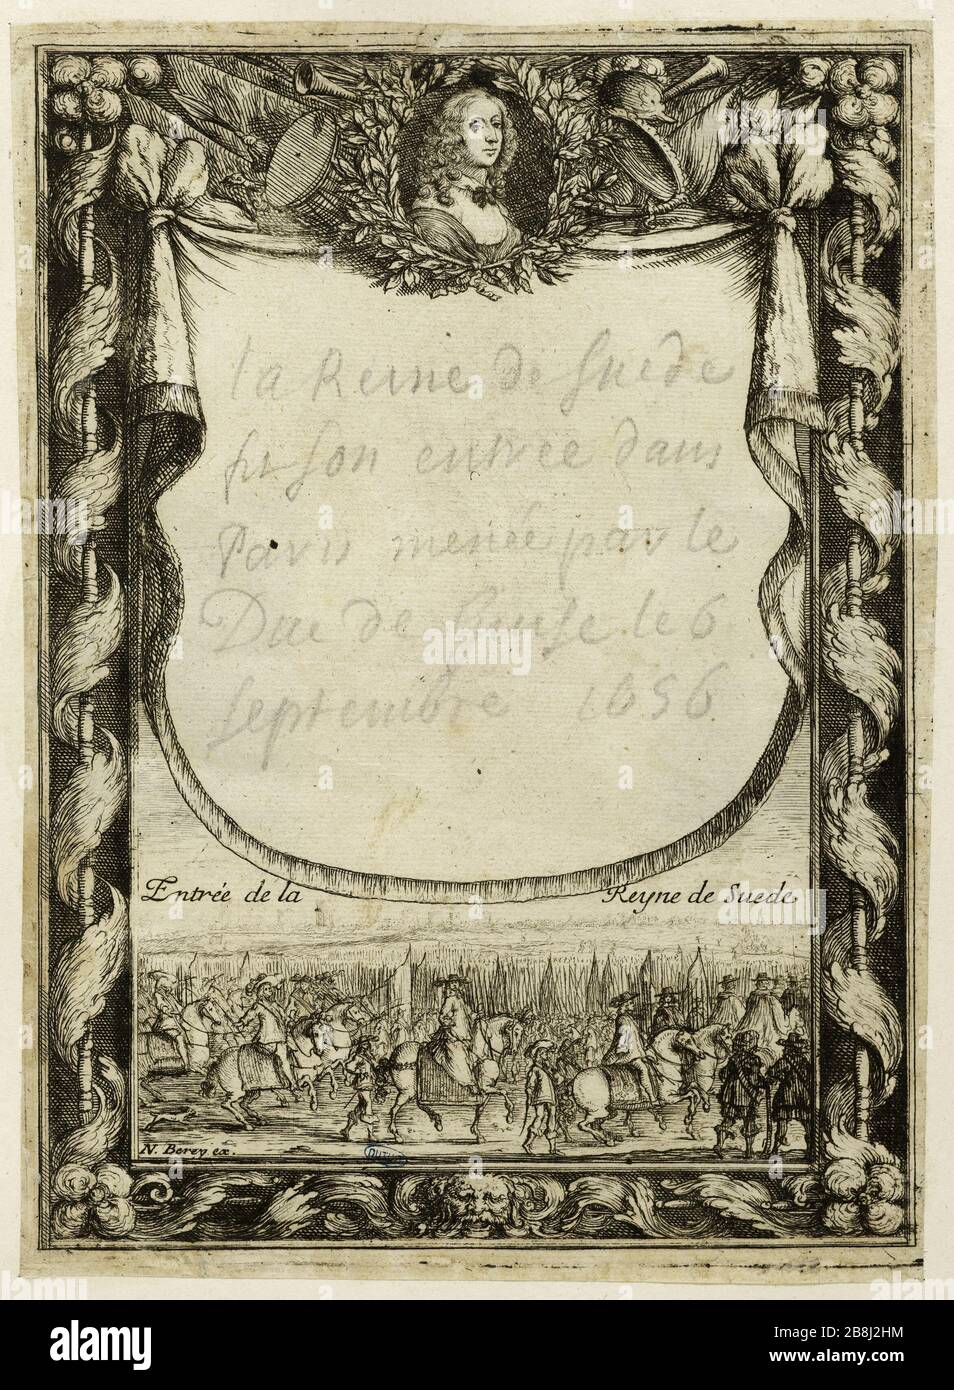 la Reine de Suede
fit son entrée dans
Paris menée par le
Duc de Guise le 6
septembre 1656
Entrée de la Reyne de Suede
N. Berey ex.
alamy
Image ID: 2B8J2HM
www.alamy.com